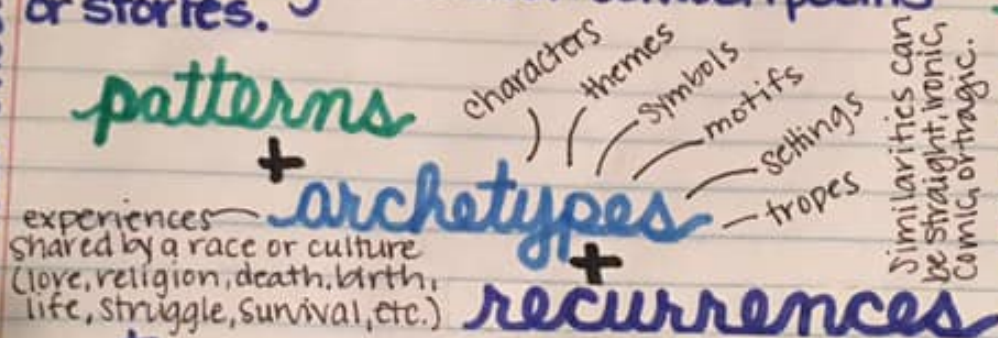 or stories.
patterns
+
archetypes
characters
themes
symbols
motifs
settings
tropes
experiences
shared by a race or culture
(love, religion, death, birth,
life, struggle, survival, etc.)
+
recurrences
Similarities can
be straight, ironic,
comic, or tragic.